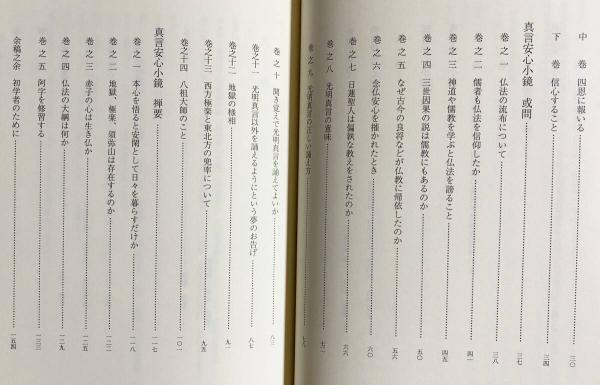 中 巻 四恩に報いる……三〇
下 巻 信心すること……三四
真言安心小鏡 或問……三七
巻之一 仏法の流布について……三八
巻之二 儒者も仏法を信仰したか……四五
巻之三 神道や儒教を学ぶと仏法を謗ること……五一
巻之四 三世因果の説は儒教にもあるのか……五四
巻之五 なぜ古今の良将などが仏教に帰依したのか……五六
巻之六 念仏安心を推されたとき……六〇
巻之七 日蓮聖人は偏狭な教えをされたのか……六六
巻之八 光明真言の意味……七二
巻之九 光明真言の正しい誦え方……七八
巻之十 聞き覚えで光明真言を誦えてよいか……八三
巻之十一 光明真言以外を誦えるようにという夢のお告げ……八七
巻之十二 地獄の様相……九一
巻之十三 西方極楽と東北方の兜率について……九五
巻之十四 八祖大師のこと……一〇一
真言安心小鏡 禅要……一一七
巻之一 本心を悟ると安閑として日々を暮らすだけか……一一八
巻之二 地獄、極楽、須弥山は存在するのか……一二二
巻之三 赤子の心は生き仏か……一二五
巻之四 仏法の大綱は何か……一二九
巻之五 阿字を修習する……一三三
余稿之余 初学者のために……一五四